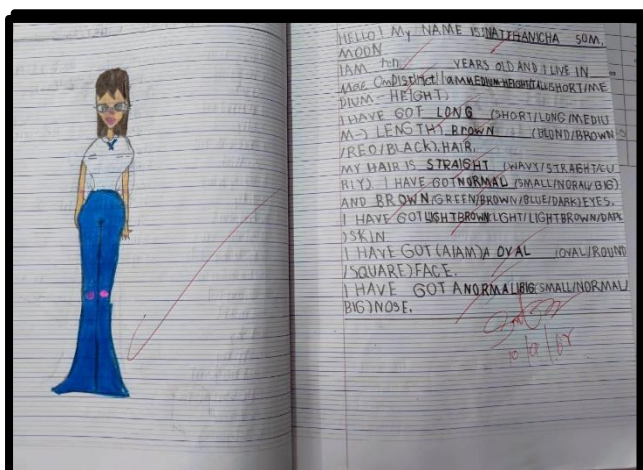 HELLO! My NAME IS NATTHANICHA SOM,
MOON
I AM YEARS OLD AND I LIVE IN
Mae On District I AM MEDIUM-HEIGHT(TALL/SHORT/ME
DIUM-HEIGHT)
I HAVE GOT LONG (SHORT/LONG/MEDIU
M-) LENGTH) BROWN (BLOND/BROWN
/RED/BLACK), HAIR.
MY HAIR IS STRAIGHT (WAVY/STRAIGHT/CU
RLY). I HAVE GOT NORMAL (SMALL/NORAL/BIG)
AND BROWN (GREEN/BROWN/BLUE/DARK) EYES.
I HAVE GOT LIGHT BROWN (LIGHT/LIGHTBROWN/DARK
) SKIN
I HAVE GOT (A)AM)A OVAL (OVAL/ROUND
/SQUARE) FACE.
I HAVE GOT A NORMAL/BIG (SMALL/NORMAL/
BIG) NOSE.